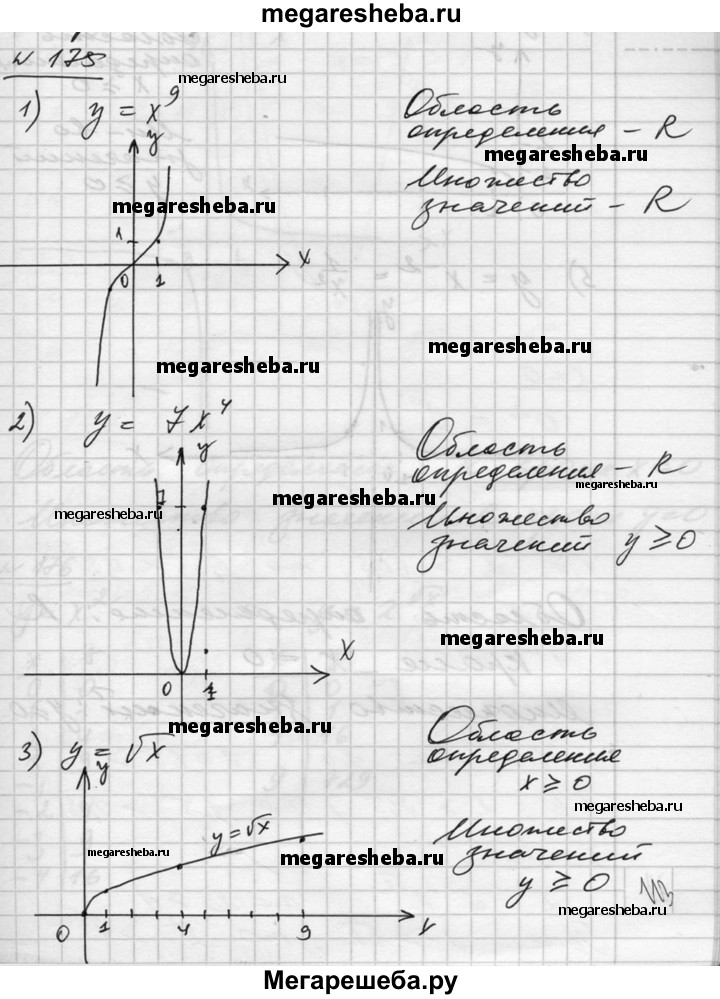 megaresheba.ru
№ 175
megaresheba.ru
1) y = x⁹
Область
определения – R
megaresheba.ru
y
Множество
значений – R
megaresheba.ru
1
0 1 x
megaresheba.ru
megaresheba.ru
2) y = 7x⁴
y
Область
определения – R
megaresheba.ru
7
megaresheba.ru
megaresheba.ru
Множество
значений y ≥ 0
megaresheba.ru
x
0 1
megaresheba.ru
3) y = √x
y
Область
определения
x ≥ 0
megaresheba.ru
y = √x
Множество
значений
y ≥ 0
megaresheba.ru
megaresheba.ru
megaresheba.ru
0 1 4 9
Мегарешеба.ру